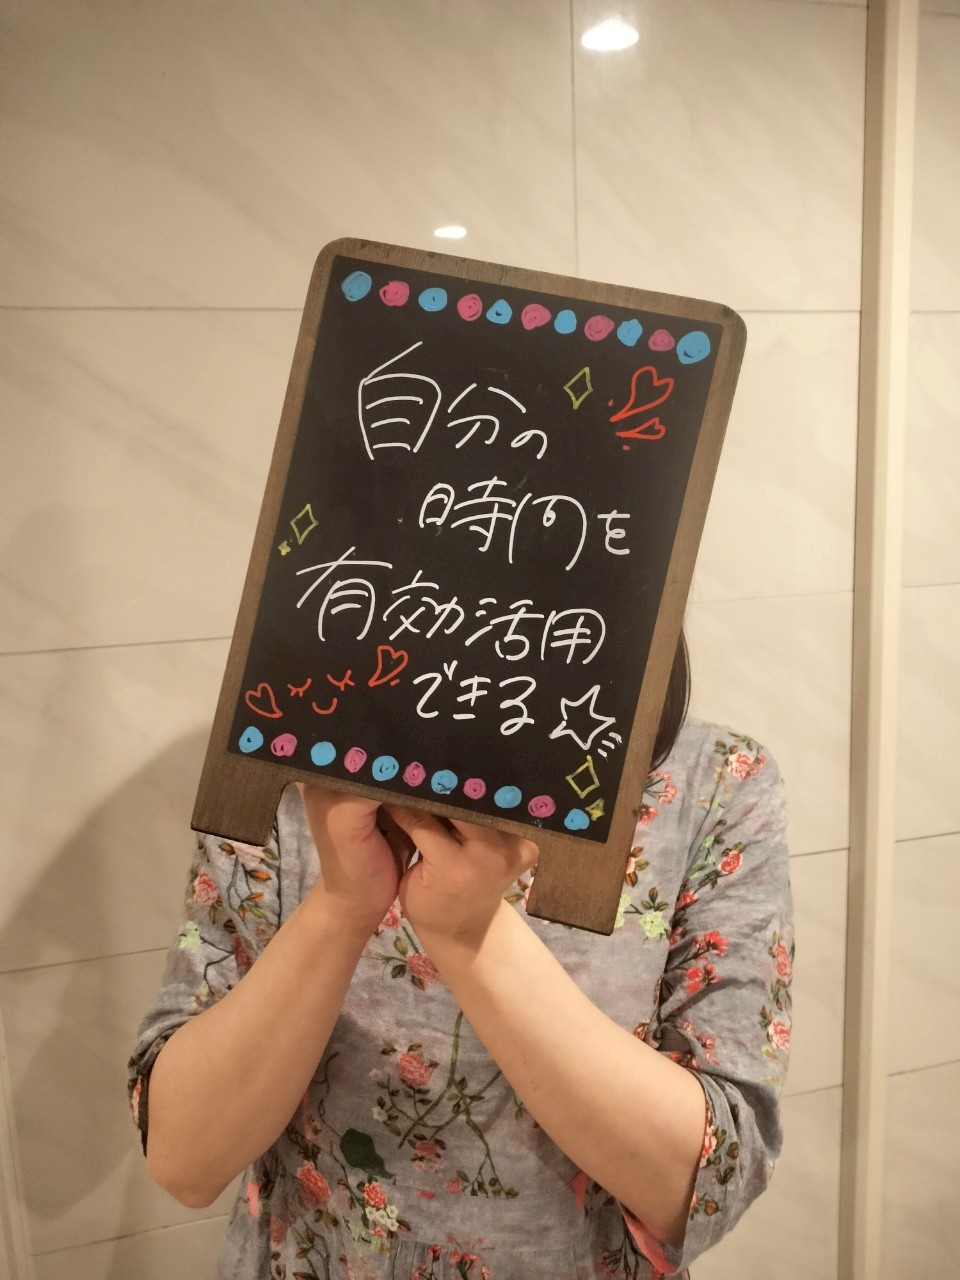 自分の
時間を
有効活用
できる